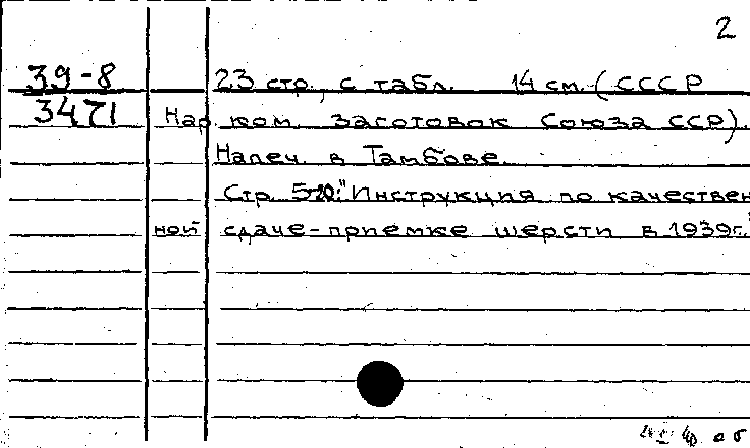 2
39-8 23 стр., с табл. 14 см. (СССР
3471 Нар. ком. заготовок Союза ССР).
Напеч. в Тамбове.
Стр. 5-20: "Инструкция по качествен
ной сдаче-приемке шерсти в 1939г."